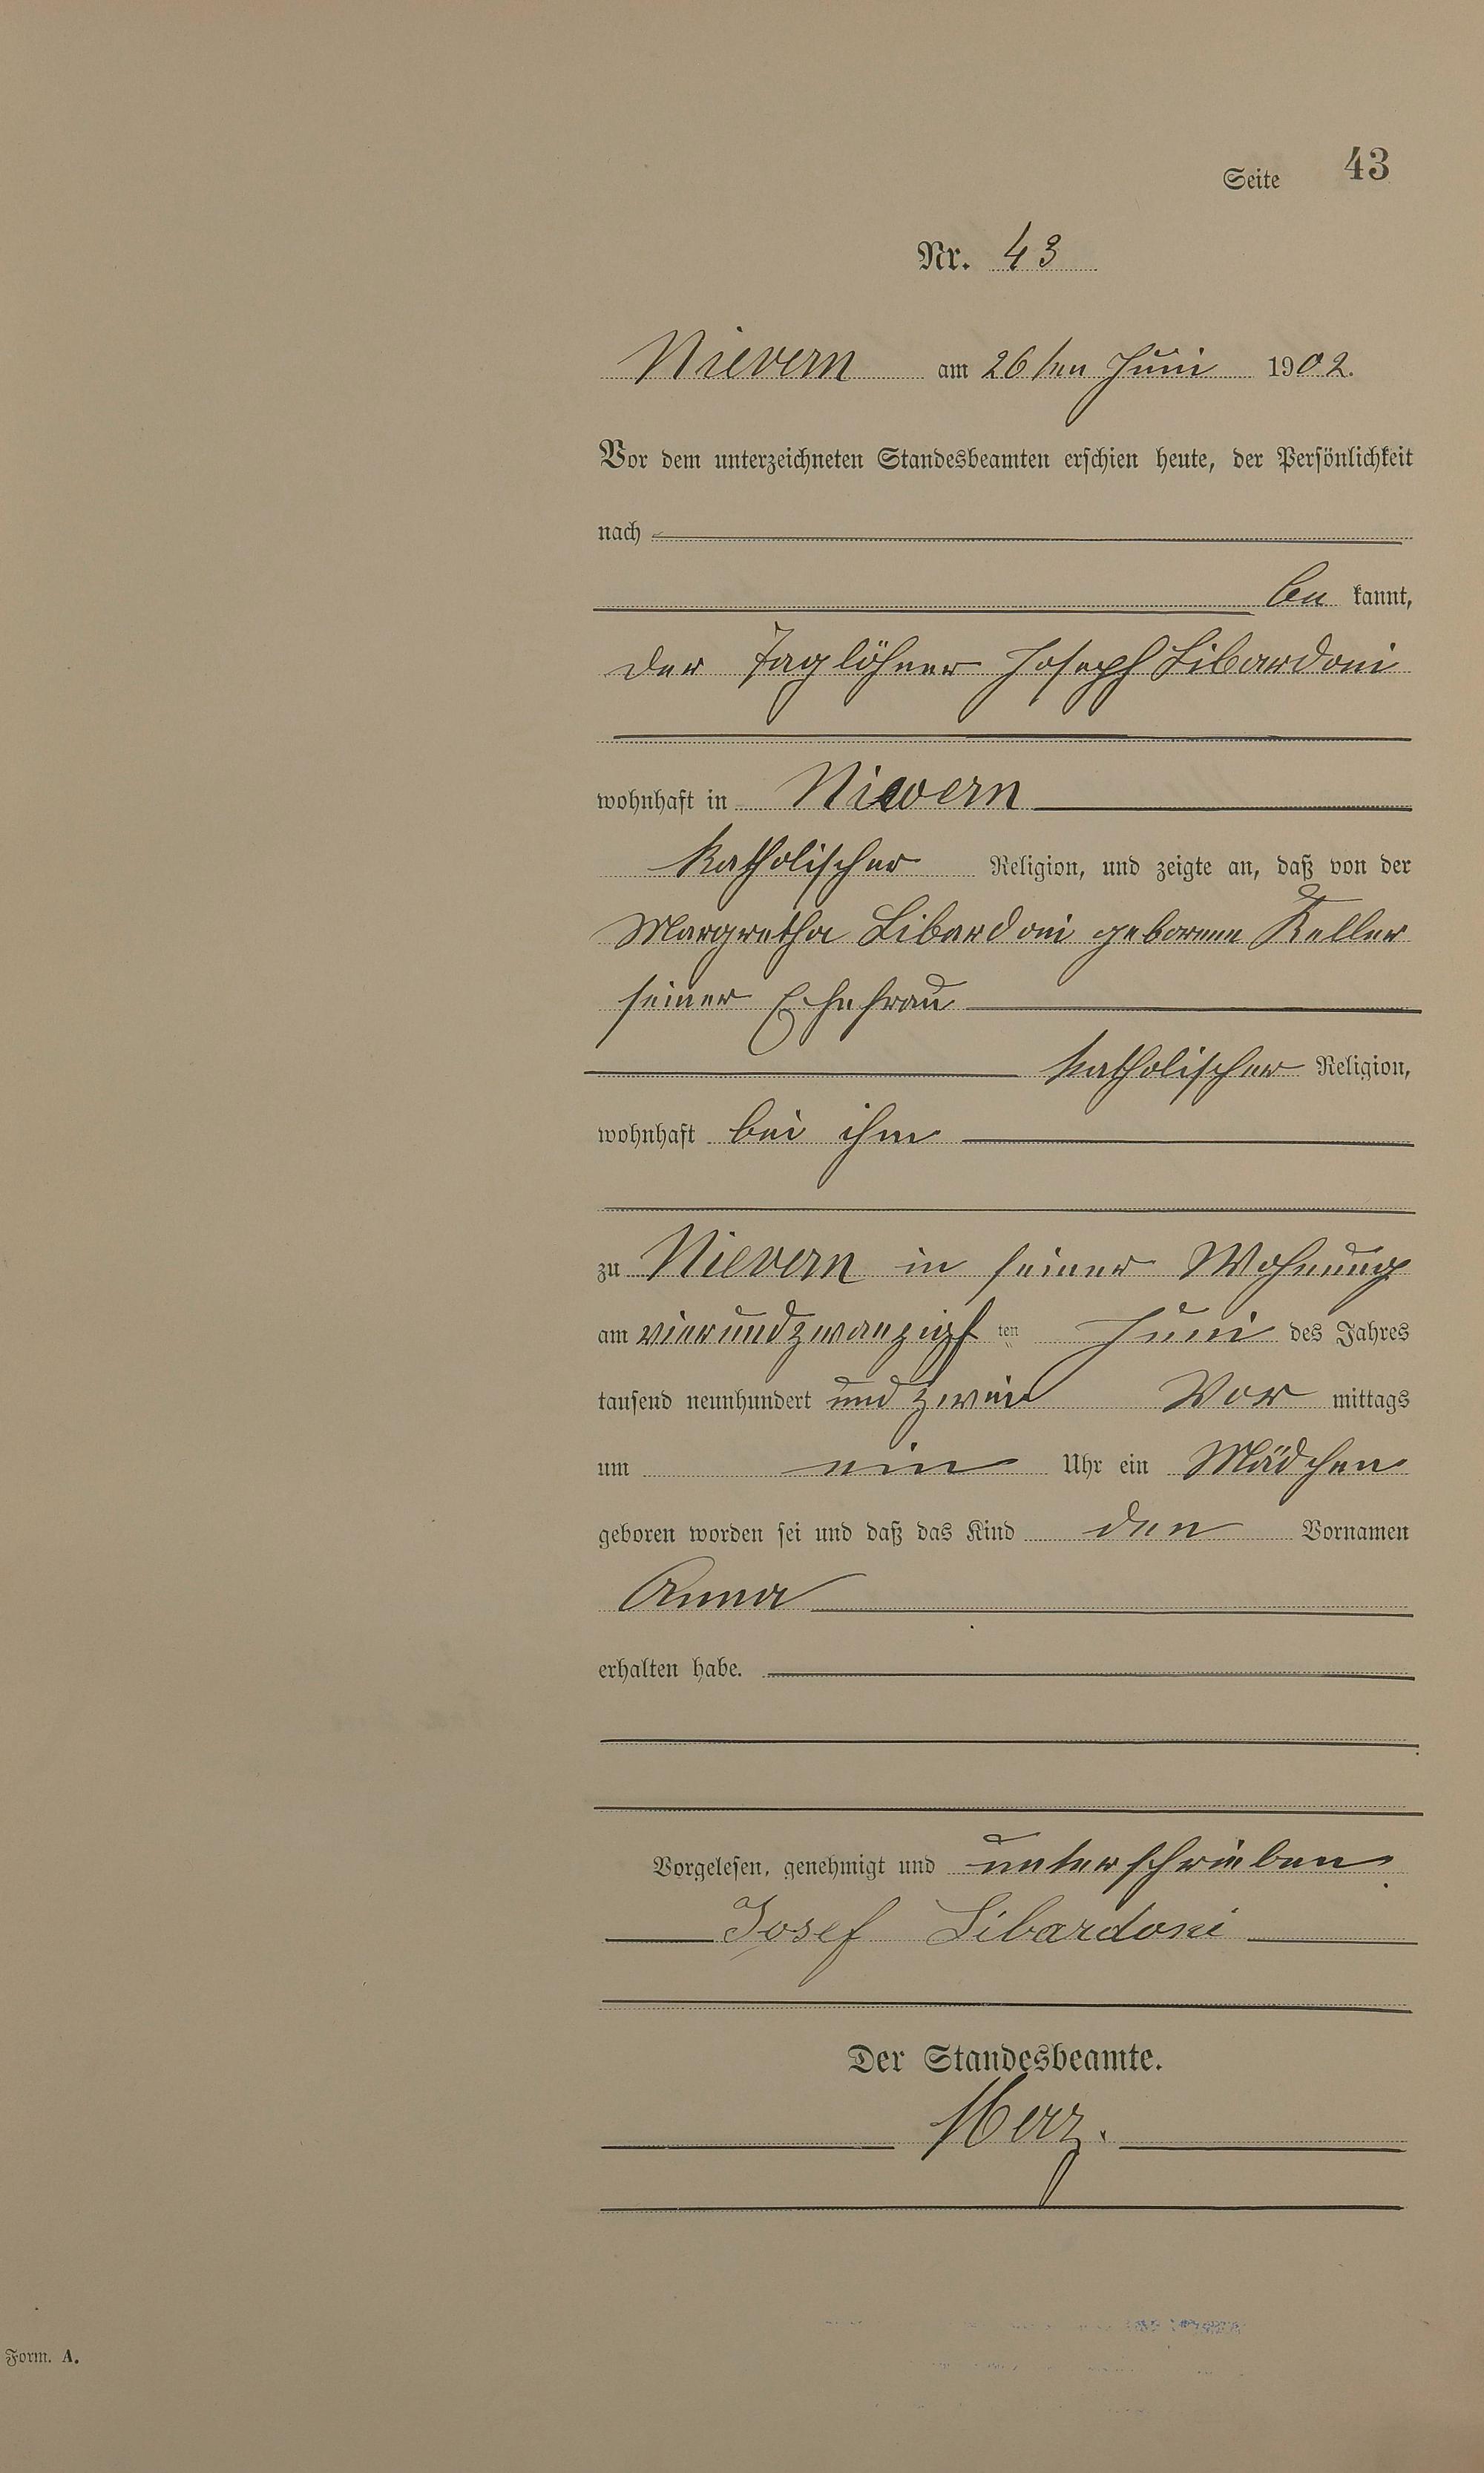 Seite 43
Nr. 43
Nievern am 26ten Juni 1902.
Vor dem unterzeichneten Standesbeamten erschien heute, der Persönlichkeit
nach
be kannt,
der Taglöhner Joseph Libardoni
wohnhaft in Nievern
katholischer Religion, und zeigte an, daß von der
Margretha Libardoni geborene Keller
seiner Ehefrau
katholischer Religion,
wohnhaft bei ihm
zu Nievern in seiner Wohnung
am vierundzwanzigst ten Juni des Jahres
tausend neunhundert und zwei Vor mittags
um ein Uhr ein Mädchen
geboren worden sei und daß das Kind den Vornamen
Anna
erhalten habe.
Vorgelesen, genehmigt und unterschrieben.
Josef Libardoni
Der Standesbeamte.
Herz.
Form. A.